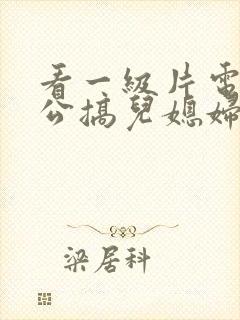 看一級片電
公搞兒媳婦
梁居科